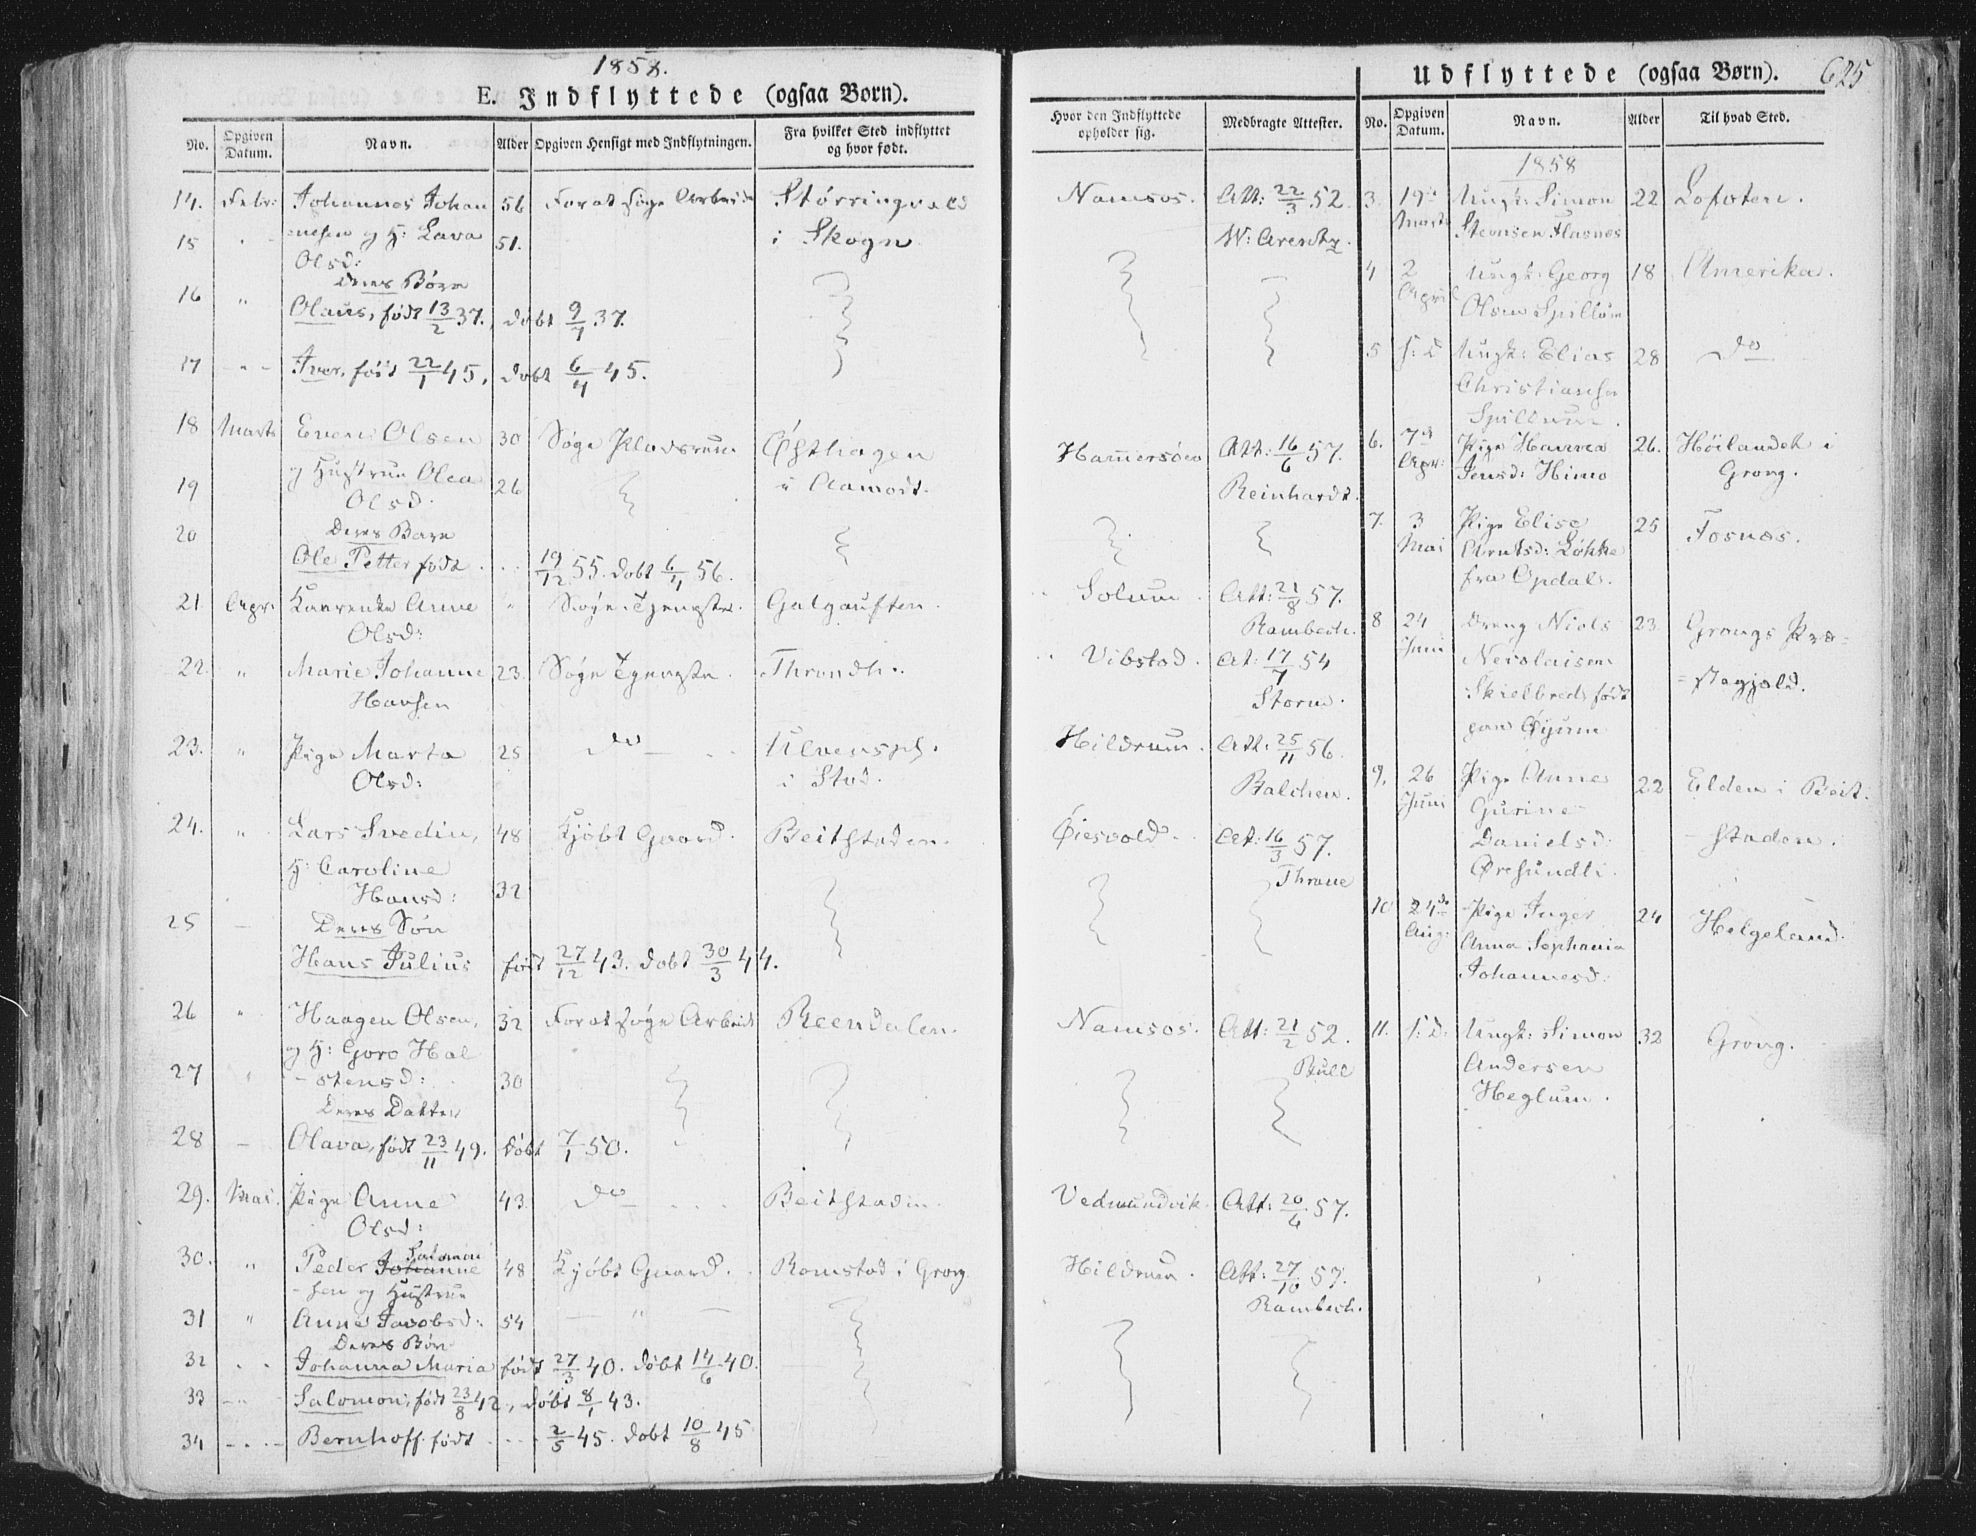 1858.
E. Indflyttede (ogsaa Børn).
No. Opgiven Datum. Navn. Alder Opgiven Hensigt med Indflytningen. Fra hvilket Sted indflyttet og hvor født.
14. Febr: Johannes Johan 56 For at søge Arbeide
15 nesen og H: Lava 51. i Skogn
Olsd:
Deres Børn
16 " Olaus, født 13/2 37. døbt 37.
17 " Iver, født 22/1 45, døbt 6/4 45.
18 Marts Even Olsen 30 Søge
19 og Hustrue Olea 26 i Aamodt.
Olsd:
20 Deres Barn
Ole Petter født 19/12 55. døbt 6/4 56.
21 Apr. Anne " Søge Tjeneste.
Olsd:
22. " Marie Johanne 23. Søge Tjeneste. Throndh.
Hansen
23. " Pige Marta 25 do
Olsd: i Stod.
24. " Lars Svedin, 48 Kjøbt Gaard. Beitstaden.
H: Caroline
Hansd: 32
25 Deres Søn
Hans Julius født 27/12 43. døbt 30/3 44.
26 " Haagen Olsen, 32 For at søge Arbeide
og H: Goro Hal
27 " stensd: 30
Deres Datter
28 Olava, født 23/11 49. døbt 7/1 50.
29. Mai. Pige Anne 43 do Beitstaden.
Olsd:
30. " Peder Johanne Salomon 48 Kjøbt Gaard. Romstad i Grong
sen og Hustrue
31 " Anne Jacobsd: 54 "
Deres Børn
32 Johanna Maria født 27/3 40. døbt 14/6 40.
33 Salomon, født 23/8 42, døbt 8/1 43.
34 Bernhoff født 2/5 45. døbt 10/8 45
Hvor den Indflyttede opholder sig. Medbragte Attester.
Namsos. Att: 22/3 52.
Att: 16/6 57.
Reinhardt.
Solum. Att: 21/8 57.
Rambech.
Vibstad. At: 17/7 54
Storm.
Hildrum. Att: 25/11 56.
Balchen.
Øiesvold. At: 16/3 57.
Thrane
Namsos. Att: 21/2 52.
Bull
Vedmundvik. Att: 20/6 57.
Hildrum. Att: 27/10 57.
Rambech.
Udflyttede (ogsaa Børn). 625
No. Opgiven Datum. Navn. Alder Til hvad Sted.
1858
3. 19de Ungk: Simon 22 Lofoten.
Marts Stensen Flasnes
4 2 Ungk: Georg 18 Amerika.
April Olsen Spillum
5 s: D Ungk: Elias 28 do
Christiansen
Spillum.
6. 7de Pige Hanna 26. Høilandet i
Apr: Jensd: Himo Grong.
7. 3 Pige Elise 25 Fosnæs.
Mai Arntsd: Løkke
fra Opdal.
8 24 Dreng Niels 23. Grongs Præ=
Juni Nicolaisen
Skielbred født =stegjeld.
paa Øyum
9. 26 Pige Anne 22 Elden i Beit
Juni Gurine
Danielsd: staden.
10 24de Pige Inger 24 Helgeland.
Aug: Anna Sophania
Johannesd:
11. s: D: Ungk: Simon 32 Grong.
Andersen
Heglum.